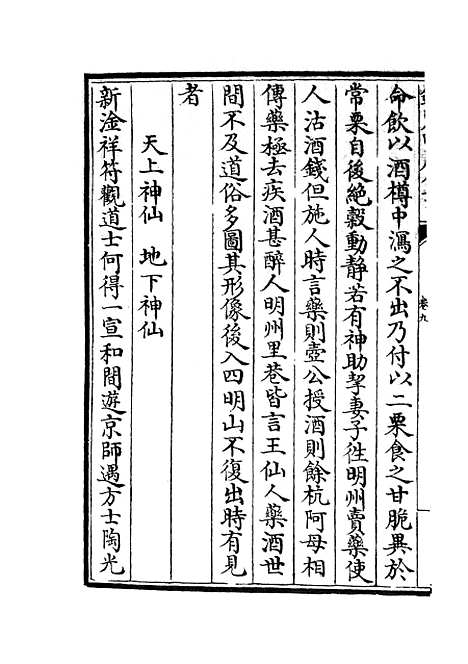 卷九
命飲以酒樽中瀉之不出乃付以二栗食之甘脆異於
常栗自後絶糓動靜若有神助挈妻子徃明州賣藥使
人沽酒錢但施人時言藥則壺公授酒則餘杭阿母相
傳藥極去疾酒甚醉人明州里巷皆言王仙人藥酒世
間不及道俗多圖其形像後入四明山不復出時有見
者
天上神仙　地下神仙
新淦祥符觀道士何得一宣和間遊京師遇方士陶光